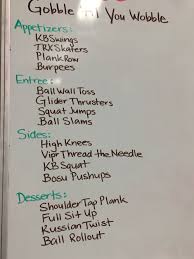 Gobble Til You Wobble
Appetizers:
KB Swings
TRX Skaters
Plank Row
Burpees
Entree:
Ball Wall Toss
Glider Thrusters
Squat Jumps
Ball Slams
Sides:
High Knees
Vipr Thread the Needle
KB Squat
Bosu Pushups
Desserts:
Shoulder Tap Plank
Full Sit Up
Russian Twist
Ball Rollout